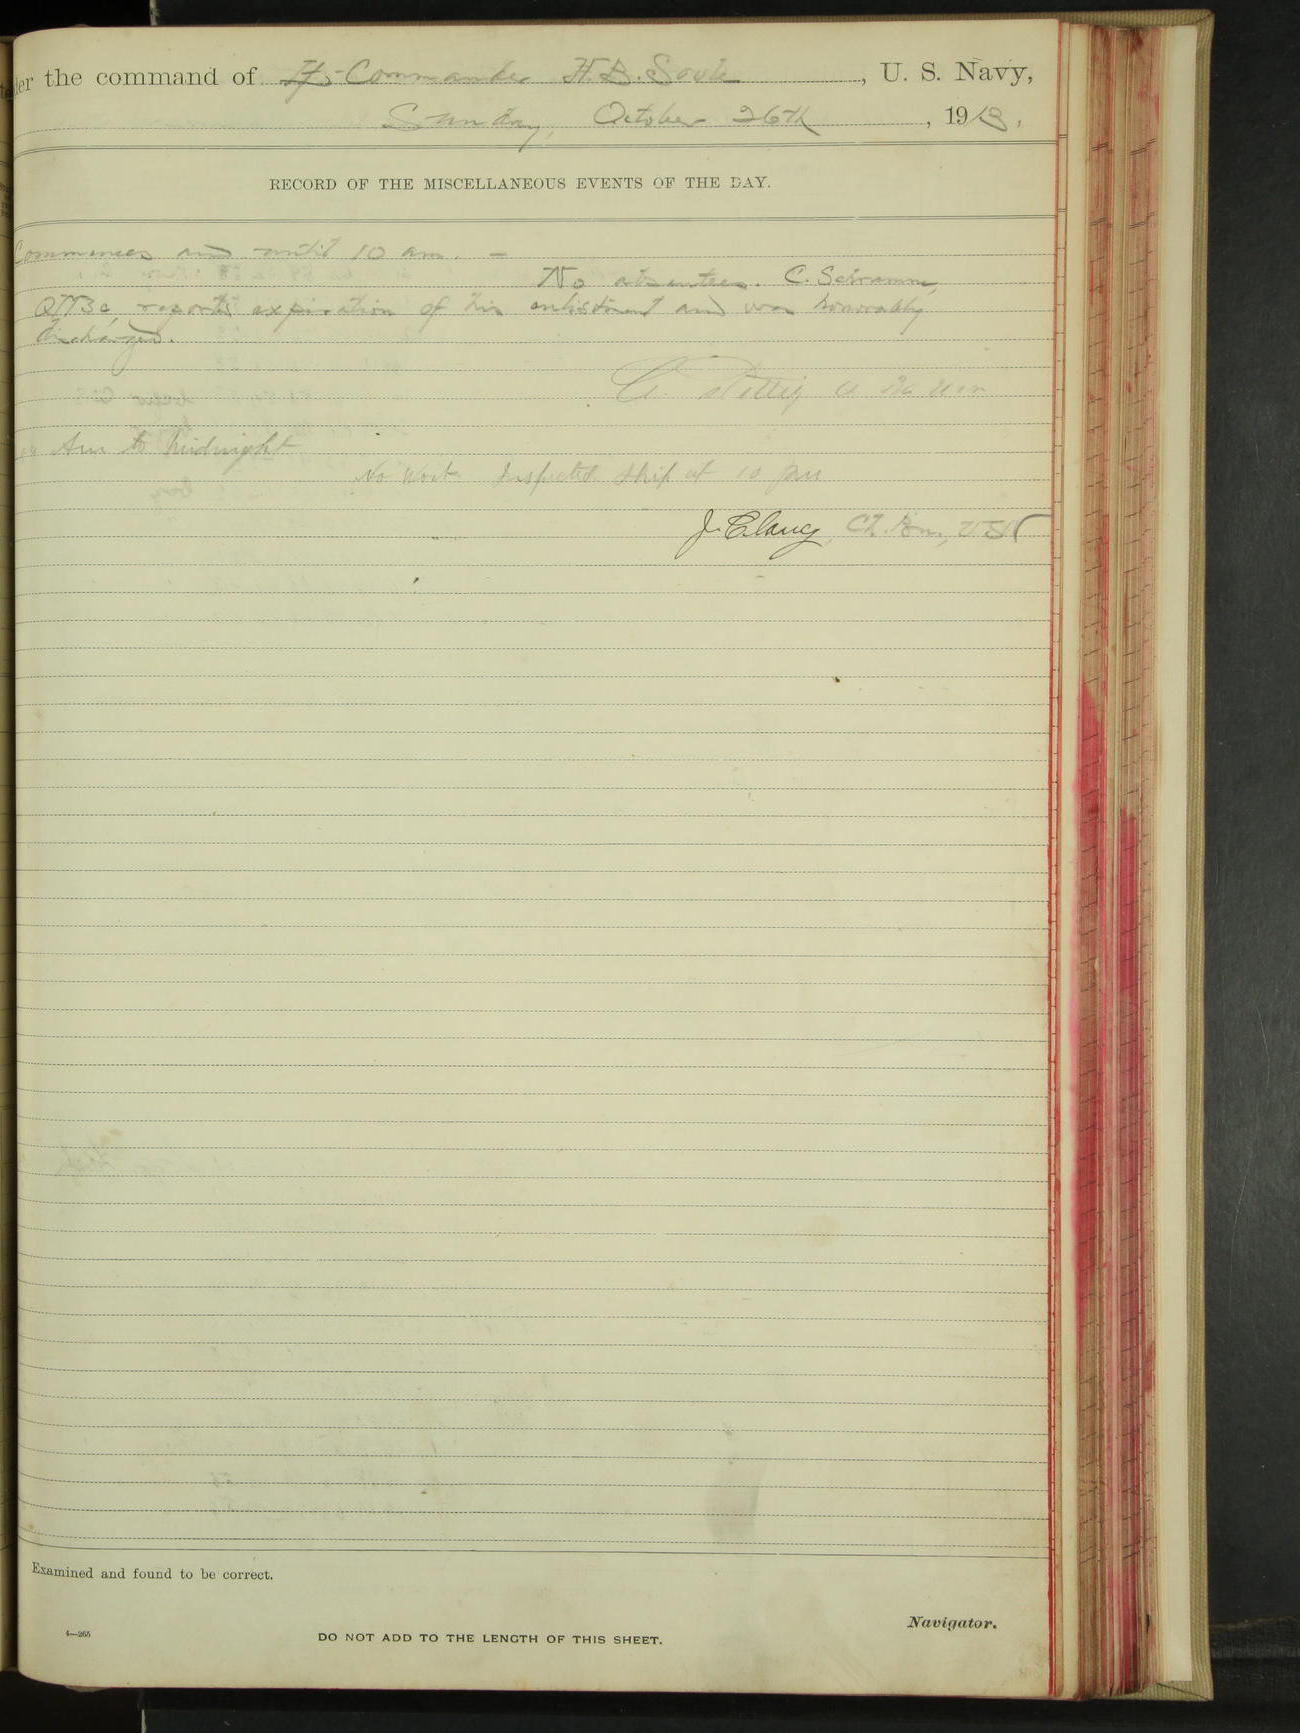 der the command of Lt-Commander H. B. Soule, U. S. Navy,
Sunday, October 26th, 1913.
RECORD OF THE MISCELLANEOUS EVENTS OF THE DAY.
Commences and until 10 am. –
No absentees. C. Schramm,
QM3c, reported expiration of his enlistment and was honorably
discharged.
C.
Am to Midnight
No Work Inspected Ship at 10 pm
J. Clancy, Ch. Bn., USN
Examined and found to be correct.
Navigator.
4—265
DO NOT ADD TO THE LENGTH OF THIS SHEET.